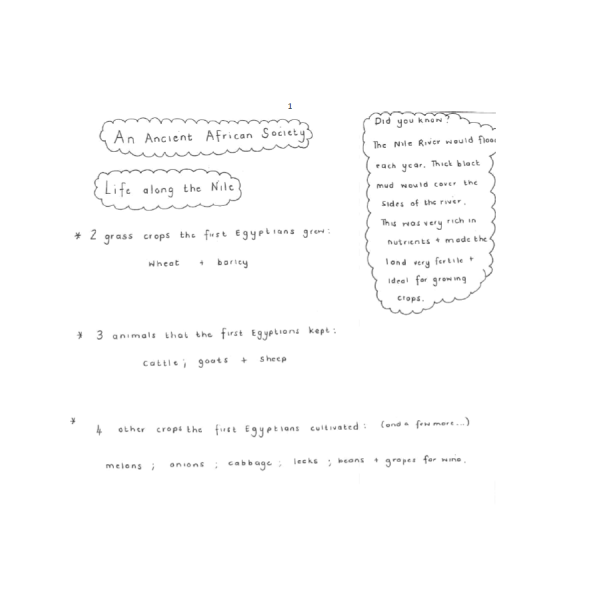 1
An Ancient African Society
Life along the Nile
* 2 grass crops the first Egyptians grew:
wheat + barley
* 3 animals that the first Egyptians kept:
cattle; goats + sheep
* 4 other crops the first Egyptians cultivated: (and a few more...)
melons ; onions ; cabbage ; leeks ; beans + grapes for wine.
Did you know?
The Nile River would flood
each year. Thick black
mud would cover the
sides of the river.
This was very rich in
nutrients + made the
land very fertile +
ideal for growing
crops.